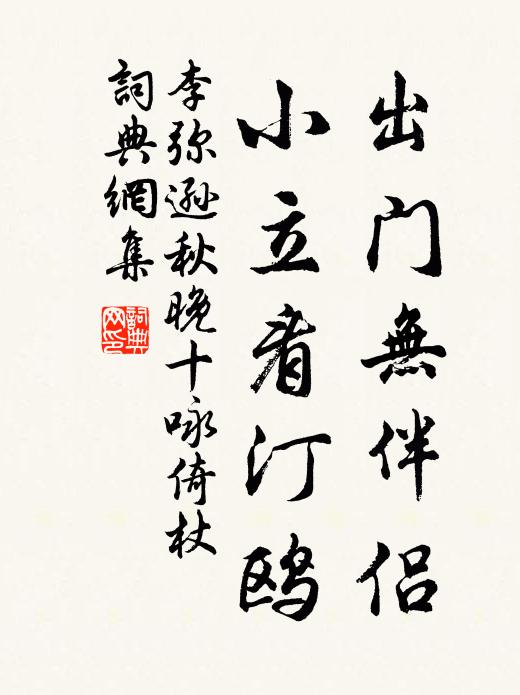 出门無伴侣
小立看汀鸥
李弥遜秋晚十咏倚杖
詞典網集
詞典
网印